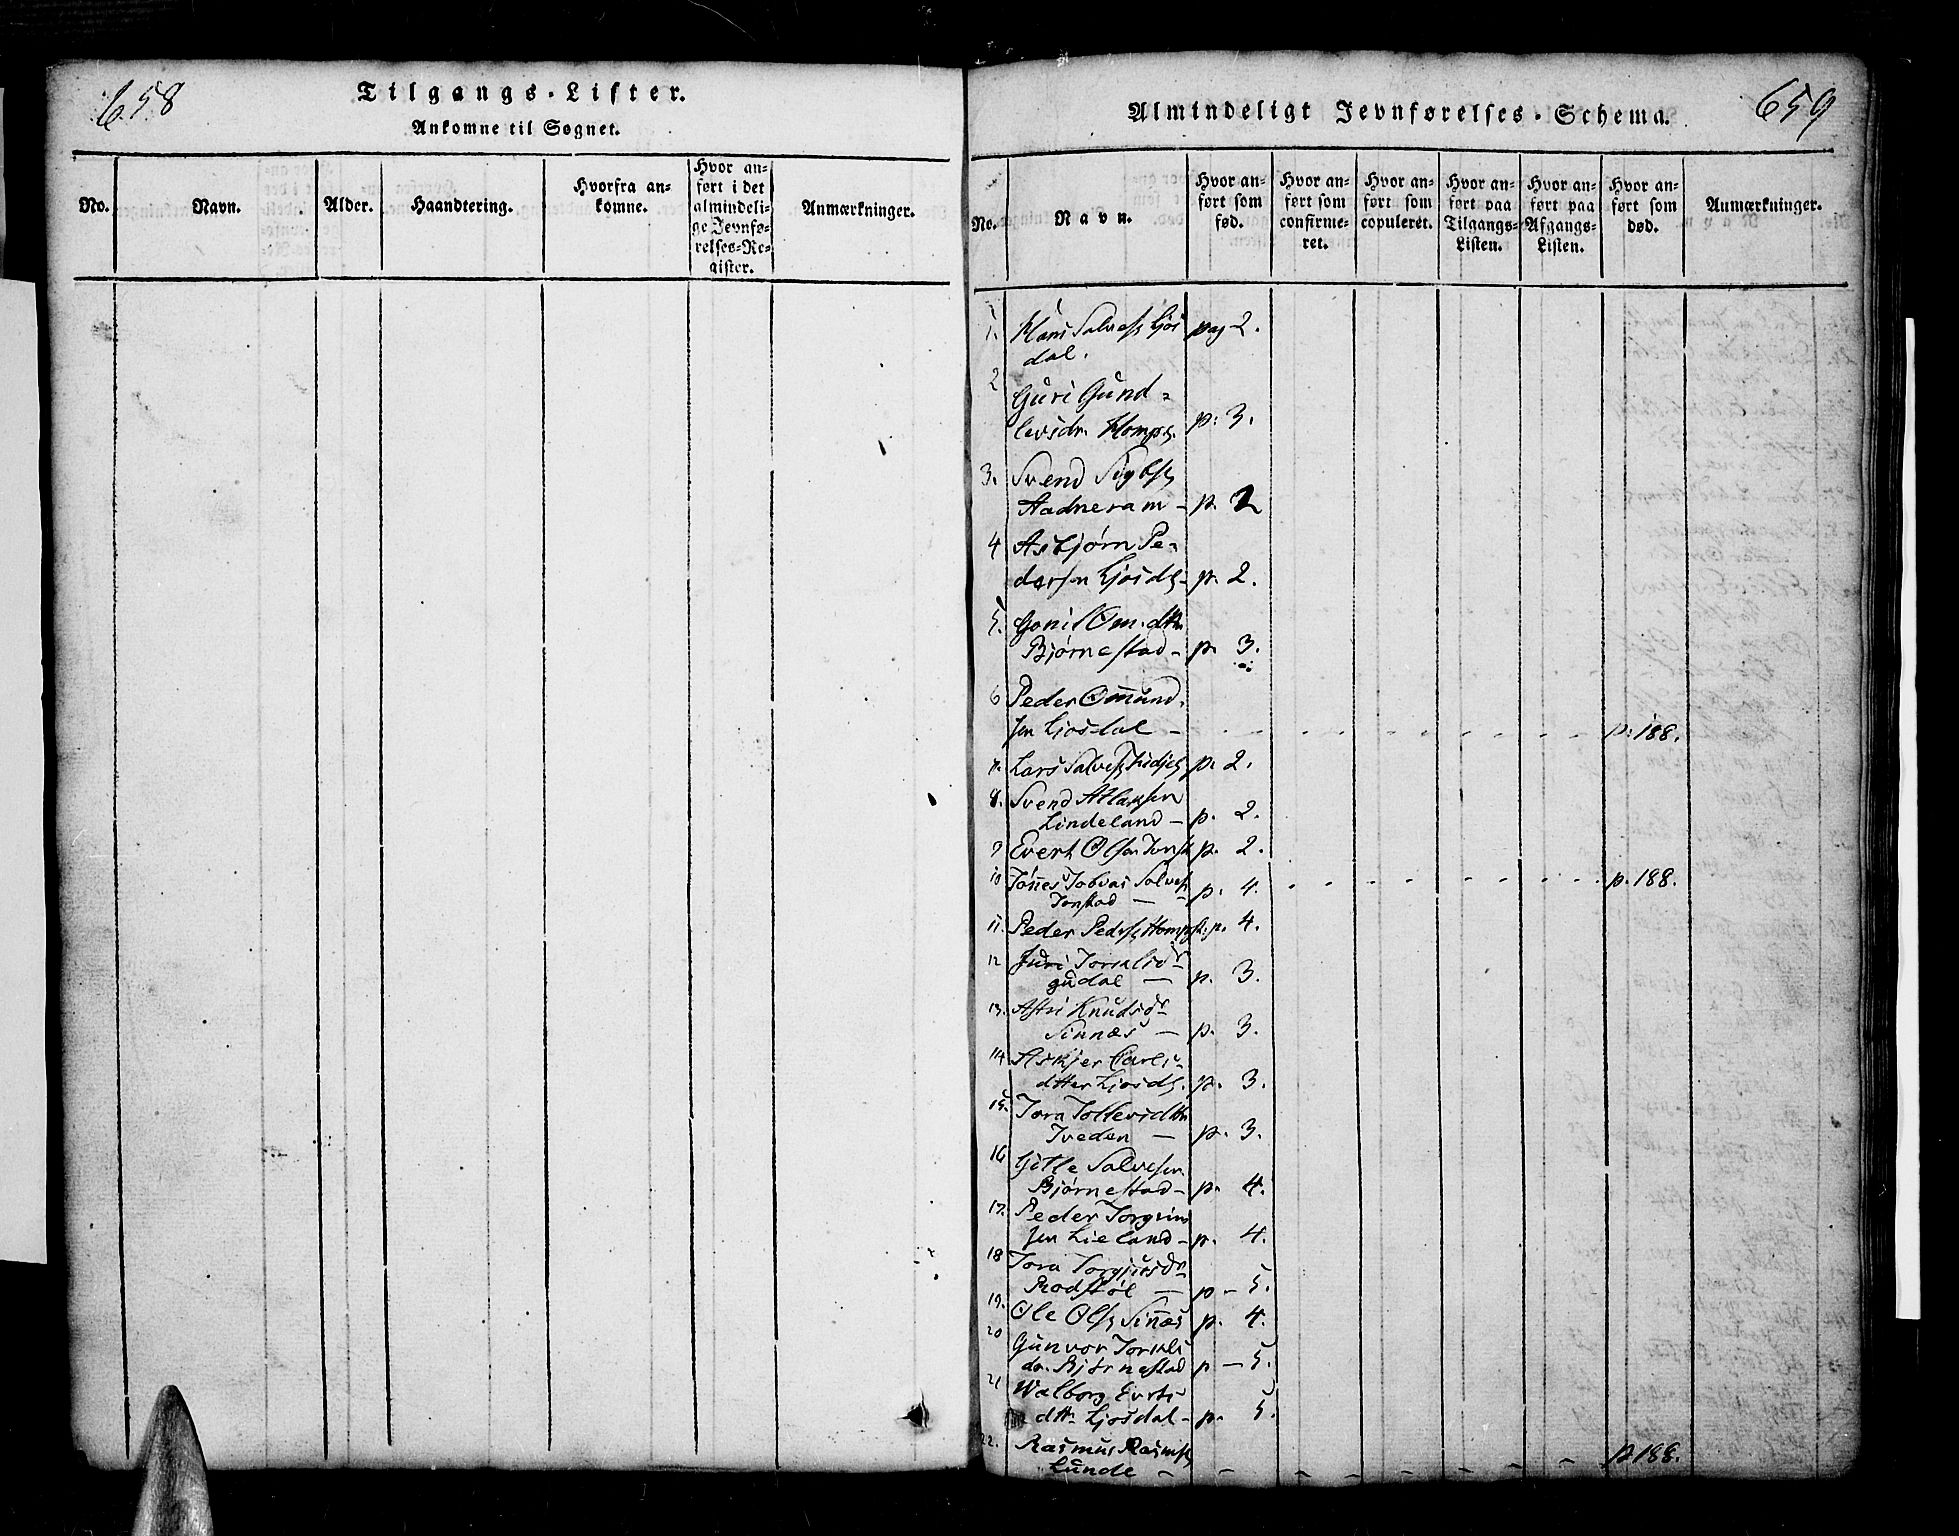 658
Tilgangs-Lister.
Ankomne til Sognet.
No.
Navn.
Alder.
Haandtering.
Hvorfra an-
komne.
Hvor an-
ført i det
almindeli-
ge Jevnfø-
relses-Re-
gister.
Anmærkninger.
Almindeligt Jevnførelses-Schema.
659
No.
Navn.
Hvor an-
ført som
fød.
Hvor an-
ført som
confirme-
ret.
Hvor an-
ført som
copuleret.
Hvor an-
ført paa
Tilgangs-
Listen.
Hvor an-
ført paa
Afgangs-
Listen.
Hvor an-
ført som
død.
Anmærkninger.
1. Hans Salves. Ljos pag 2.
dal.
2 Guri Gund-
levsdr. Homps. p. 3.
3. Svend Sigbs.
Aadneram - p. 2
4 Asbjørn Pe-
dersen Ljosdl. p. 2.
5. Gonil Om. dttr.
Bjørnestad - p. 3.
6 Peder Omund-
sen Ljosdal - p. 188.
7. Lars Salves. p. 2.
8. Svend Atlaksen
Lindeland - p. 2.
9 Evert Olsen p. 2.
10 Tønnes Tobias Salves. p. 4. p. 188.
Tonstad -
11. Peder Peders. Homps. p. 4.
12 Guri Torkelsdr
gudal - p. 3.
13. Astri Knudsdr
Sinnæs - p. 3.
14 Askjer Carls-
dtter Ljosdl. p. 3.
15. Tora Tollevsdttr
Tveden - p. 3.
16 Gitle Salvesen
Bjørnestad - p. 4.
17. Peder Torgrim
sen Lieland - p. 4.
18 Tora Torgjusdr
Rodstøl - p - 5.
19. Ole Ols. Sinnæs p. 4.
20 Gunvor Torkels
dr. Bjørnestad p - 5.
21 Walborg Everts
dttr Ljosdal - p. 5.
22. Rasmus Rasms.
Lunde - p 188.